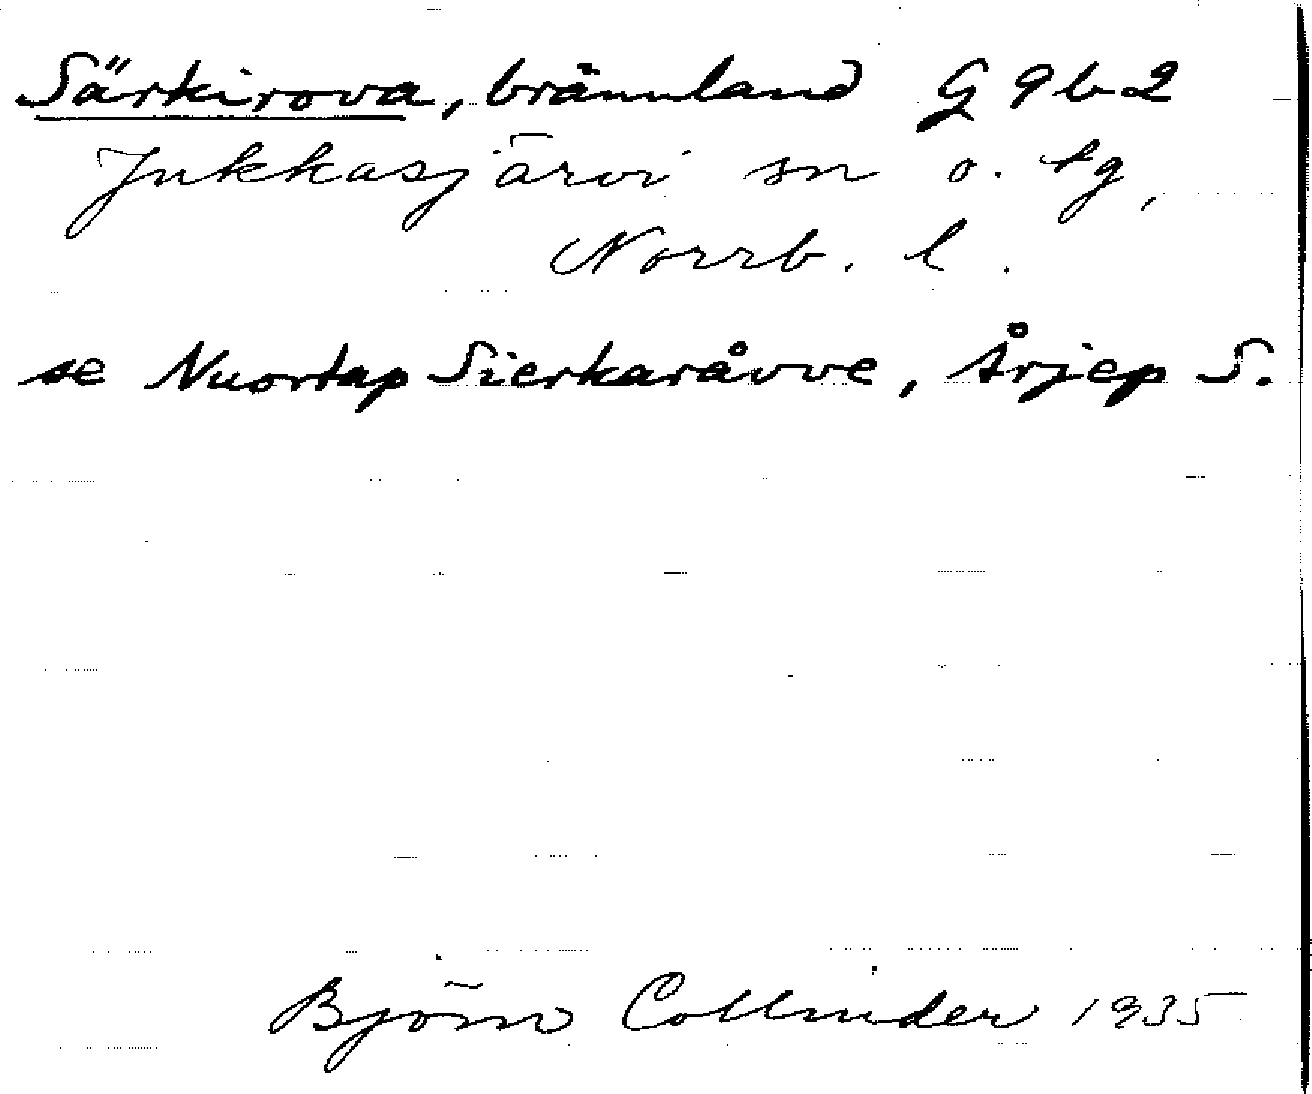 Särkirova, brännland G 9 b 2
Jukkasjärvi sn o. tg,
Norrb. l.
se Nuortap Sierkaråvve, Årjep S.
Björn Collinder 1935